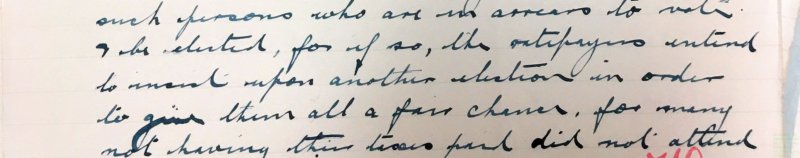 such persons who are in arrears to vote
& be elected, for if so, the ratepayers intend
to insist upon another election in order
to give them all a fair chance, for many
not having their taxes paid did not attend